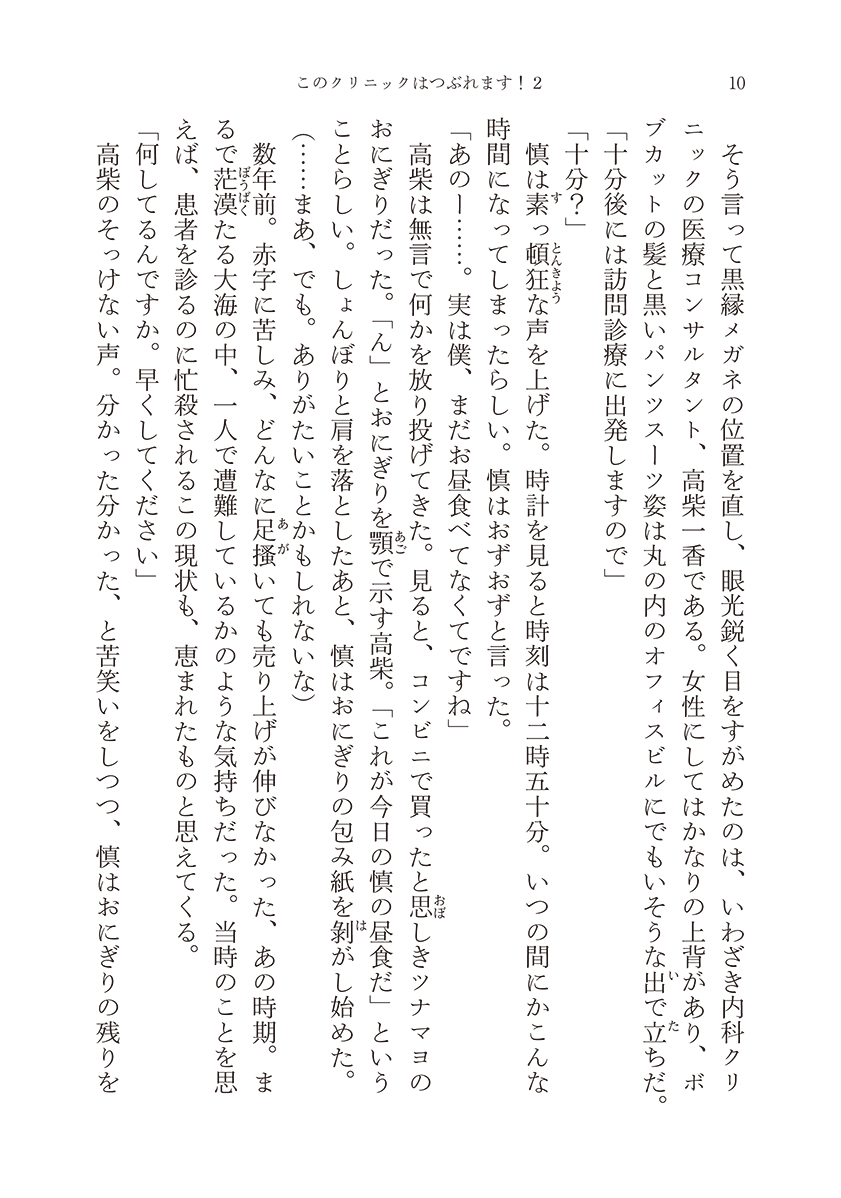 このクリニックはつぶれます！２
10
　そう言って黒縁メガネの位置を直し、眼光鋭く目をすがめたのは、いわざき内科クリ
ニックの医療コンサルタント、高柴一香である。女性にしてはかなりの上背があり、ボ
ブカットの髪と黒いパンツスーツ姿は丸の内のオフィスビルにでもいそうな出で立ちだ。
「十分後には訪問診療に出発しますので」
「十分？」
　慎は素っ頓狂な声を上げた。時計を見ると時刻は十二時五十分。いつの間にかこんな
時間になってしまったらしい。慎はおずおずと言った。
「あのー……。実は僕、まだお昼食べてなくてですね」
　高柴は無言で何かを放り投げてきた。見ると、コンビニで買ったと思しきツナマヨの
おにぎりだった。「ん」とおにぎりを顎で示す高柴。「これが今日の慎の昼食だ」という
ことらしい。しょんぼりと肩を落としたあと、慎はおにぎりの包み紙を剝がし始めた。
（……まあ、でも。ありがたいことかもしれないな）
　数年前。赤字に苦しみ、どんなに足搔いても売り上げが伸びなかった、あの時期。ま
るで茫漠たる大海の中、一人で遭難しているかのような気持ちだった。当時のことを思
えば、患者を診るのに忙殺されるこの現状も、恵まれたものと思えてくる。
「何してるんですか。早くしてください」
　高柴のそっけない声。分かった分かった、と苦笑いをしつつ、慎はおにぎりの残りを